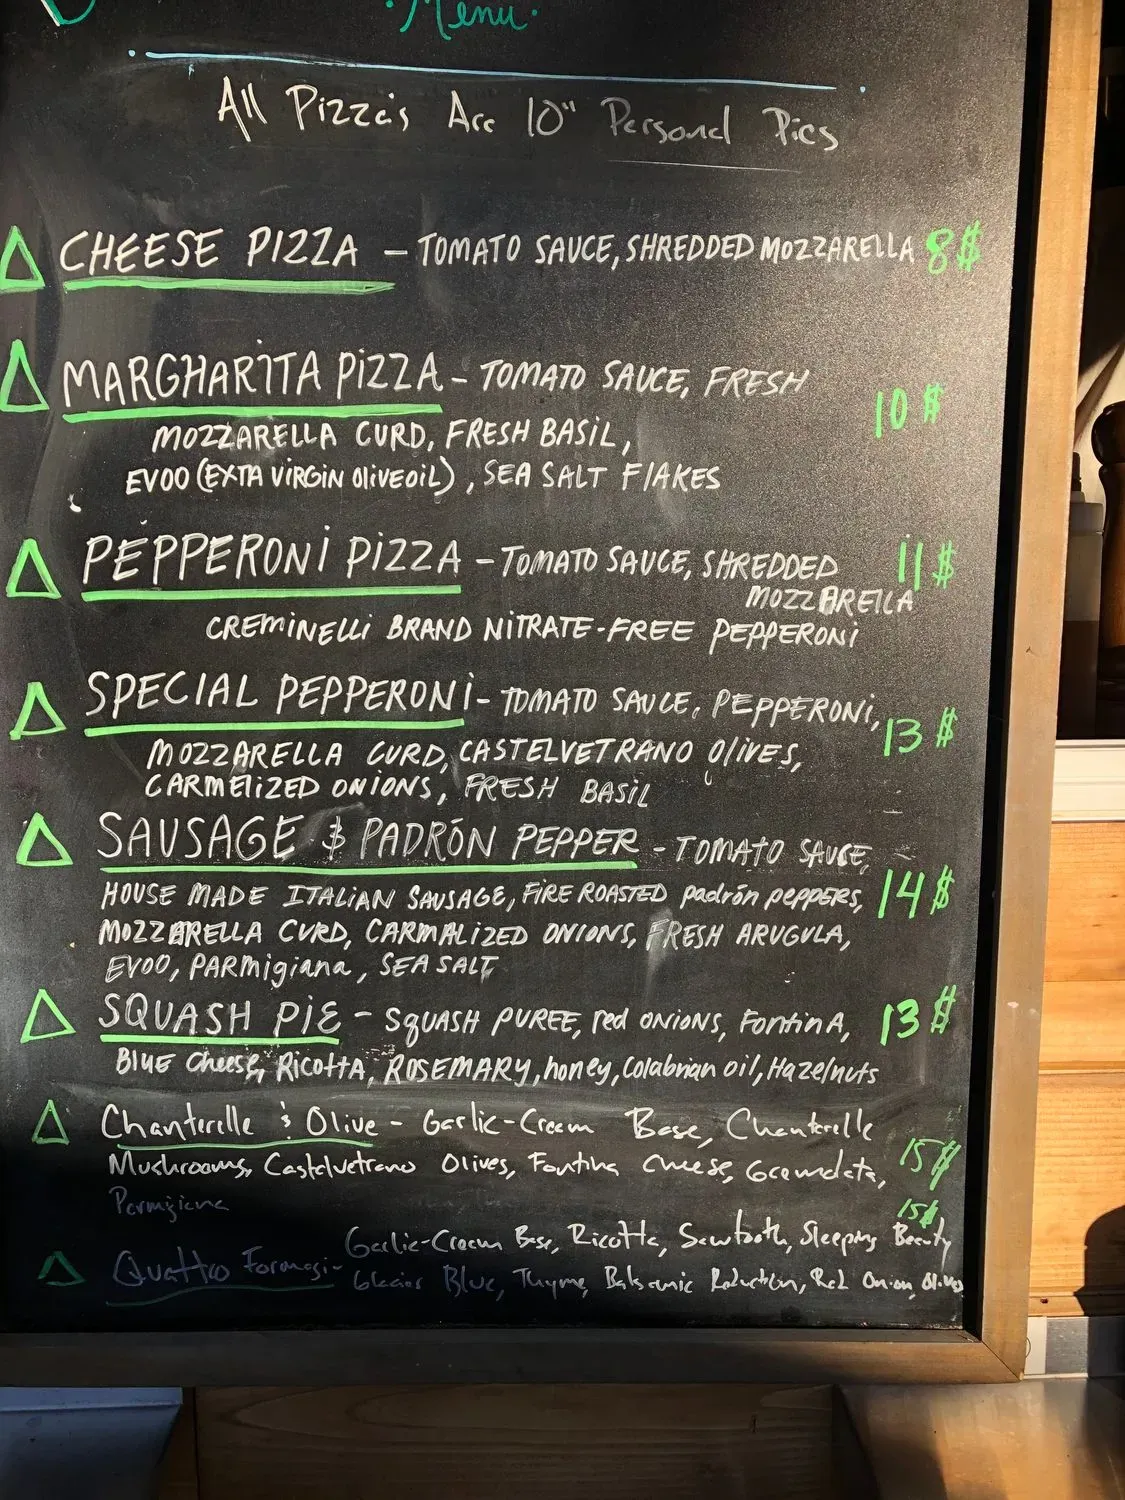 ·Menu·
All Pizza's Are 10" Personal Pies
CHEESE PIZZA – TOMATO SAUCE, SHREDDED MOZZARELLA 8$
MARGHARITA PIZZA – TOMATO SAUCE, FRESH
MOZZARELLA CURD, FRESH BASIL, 10$
EVOO (EXTA VIRGIN OLIVE OIL), SEA SALT FLAKES
PEPPERONI PIZZA – TOMATO SAUCE, SHREDDED 11$
MOZZARELLA
CREMINELLI BRAND NITRATE-FREE PEPPERONI
SPECIAL PEPPERONI – TOMATO SAUCE, PEPPERONI, 13$
MOZZARELLA CURD, CASTELVETRANO OLIVES,
CARMELIZED ONIONS, FRESH BASIL
SAUSAGE & PADRÓN PEPPER – TOMATO SAUCE,
HOUSE MADE ITALIAN SAUSAGE, FIRE ROASTED padrón peppers, 14$
MOZZARELLA CURD, CARMALIZED ONIONS, FRESH ARUGULA,
EVOO, PARmigiana, SEA SALT
SQUASH PIE – SQUASH PUREE, red ONIONS, FontinA, 13$
BLUE Cheese, RICOttA, ROSEMARY, honey, Colabrian oil, Hazelnuts
Chanterelle & Olive – Garlic-Cream Base, Chanterelle
Mushrooms, Castelvetrano Olives, Fontina Cheese, Gramolata, 15$
Parmigiana
15$
Garlic-Cream Base, Ricotta, Sawtooth, Sleeping Beauty
Quattro Formagi – Glacier Blue, Thyme, Balsamic Reduction, Red Onion, Olives